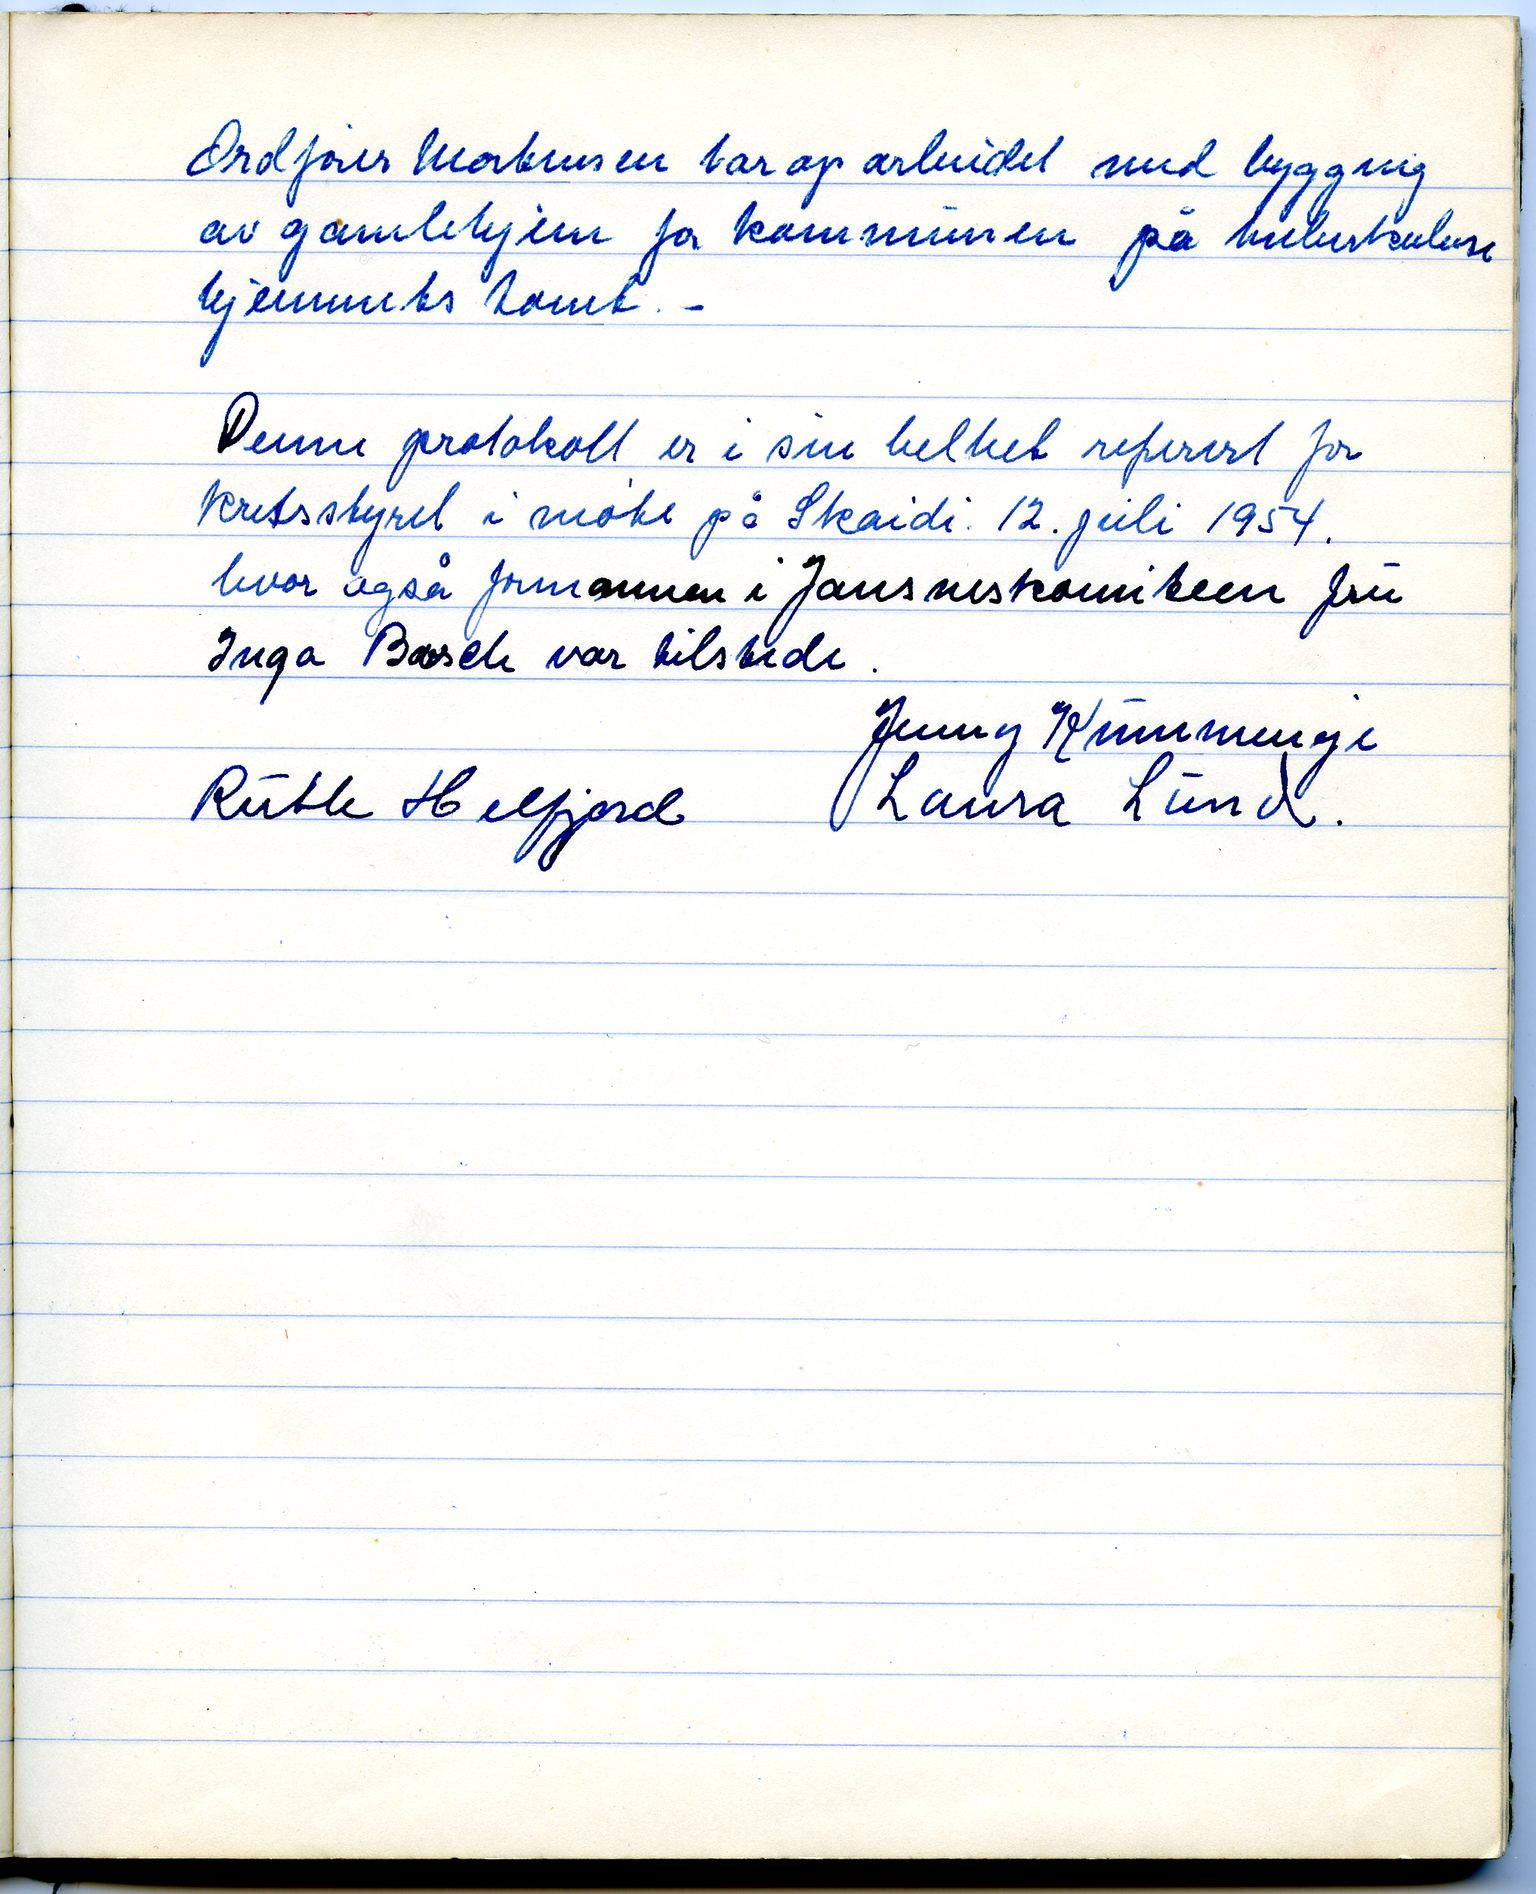 Ordfører Mortensen tar op arbeidet med bygging
av gamlehjem for kommunen på tuberkulose
hjemmets tomt. -
Denne protokoll er i sin helhet referert for
Kretsstyret i møte på Skaidi. 12. juli 1954.
hvor også formannen i Jansneskomiteen fru
Inga Bosch var tilstede.
Jenny Kummeneje
Ruth Helfjord Laura Lund.